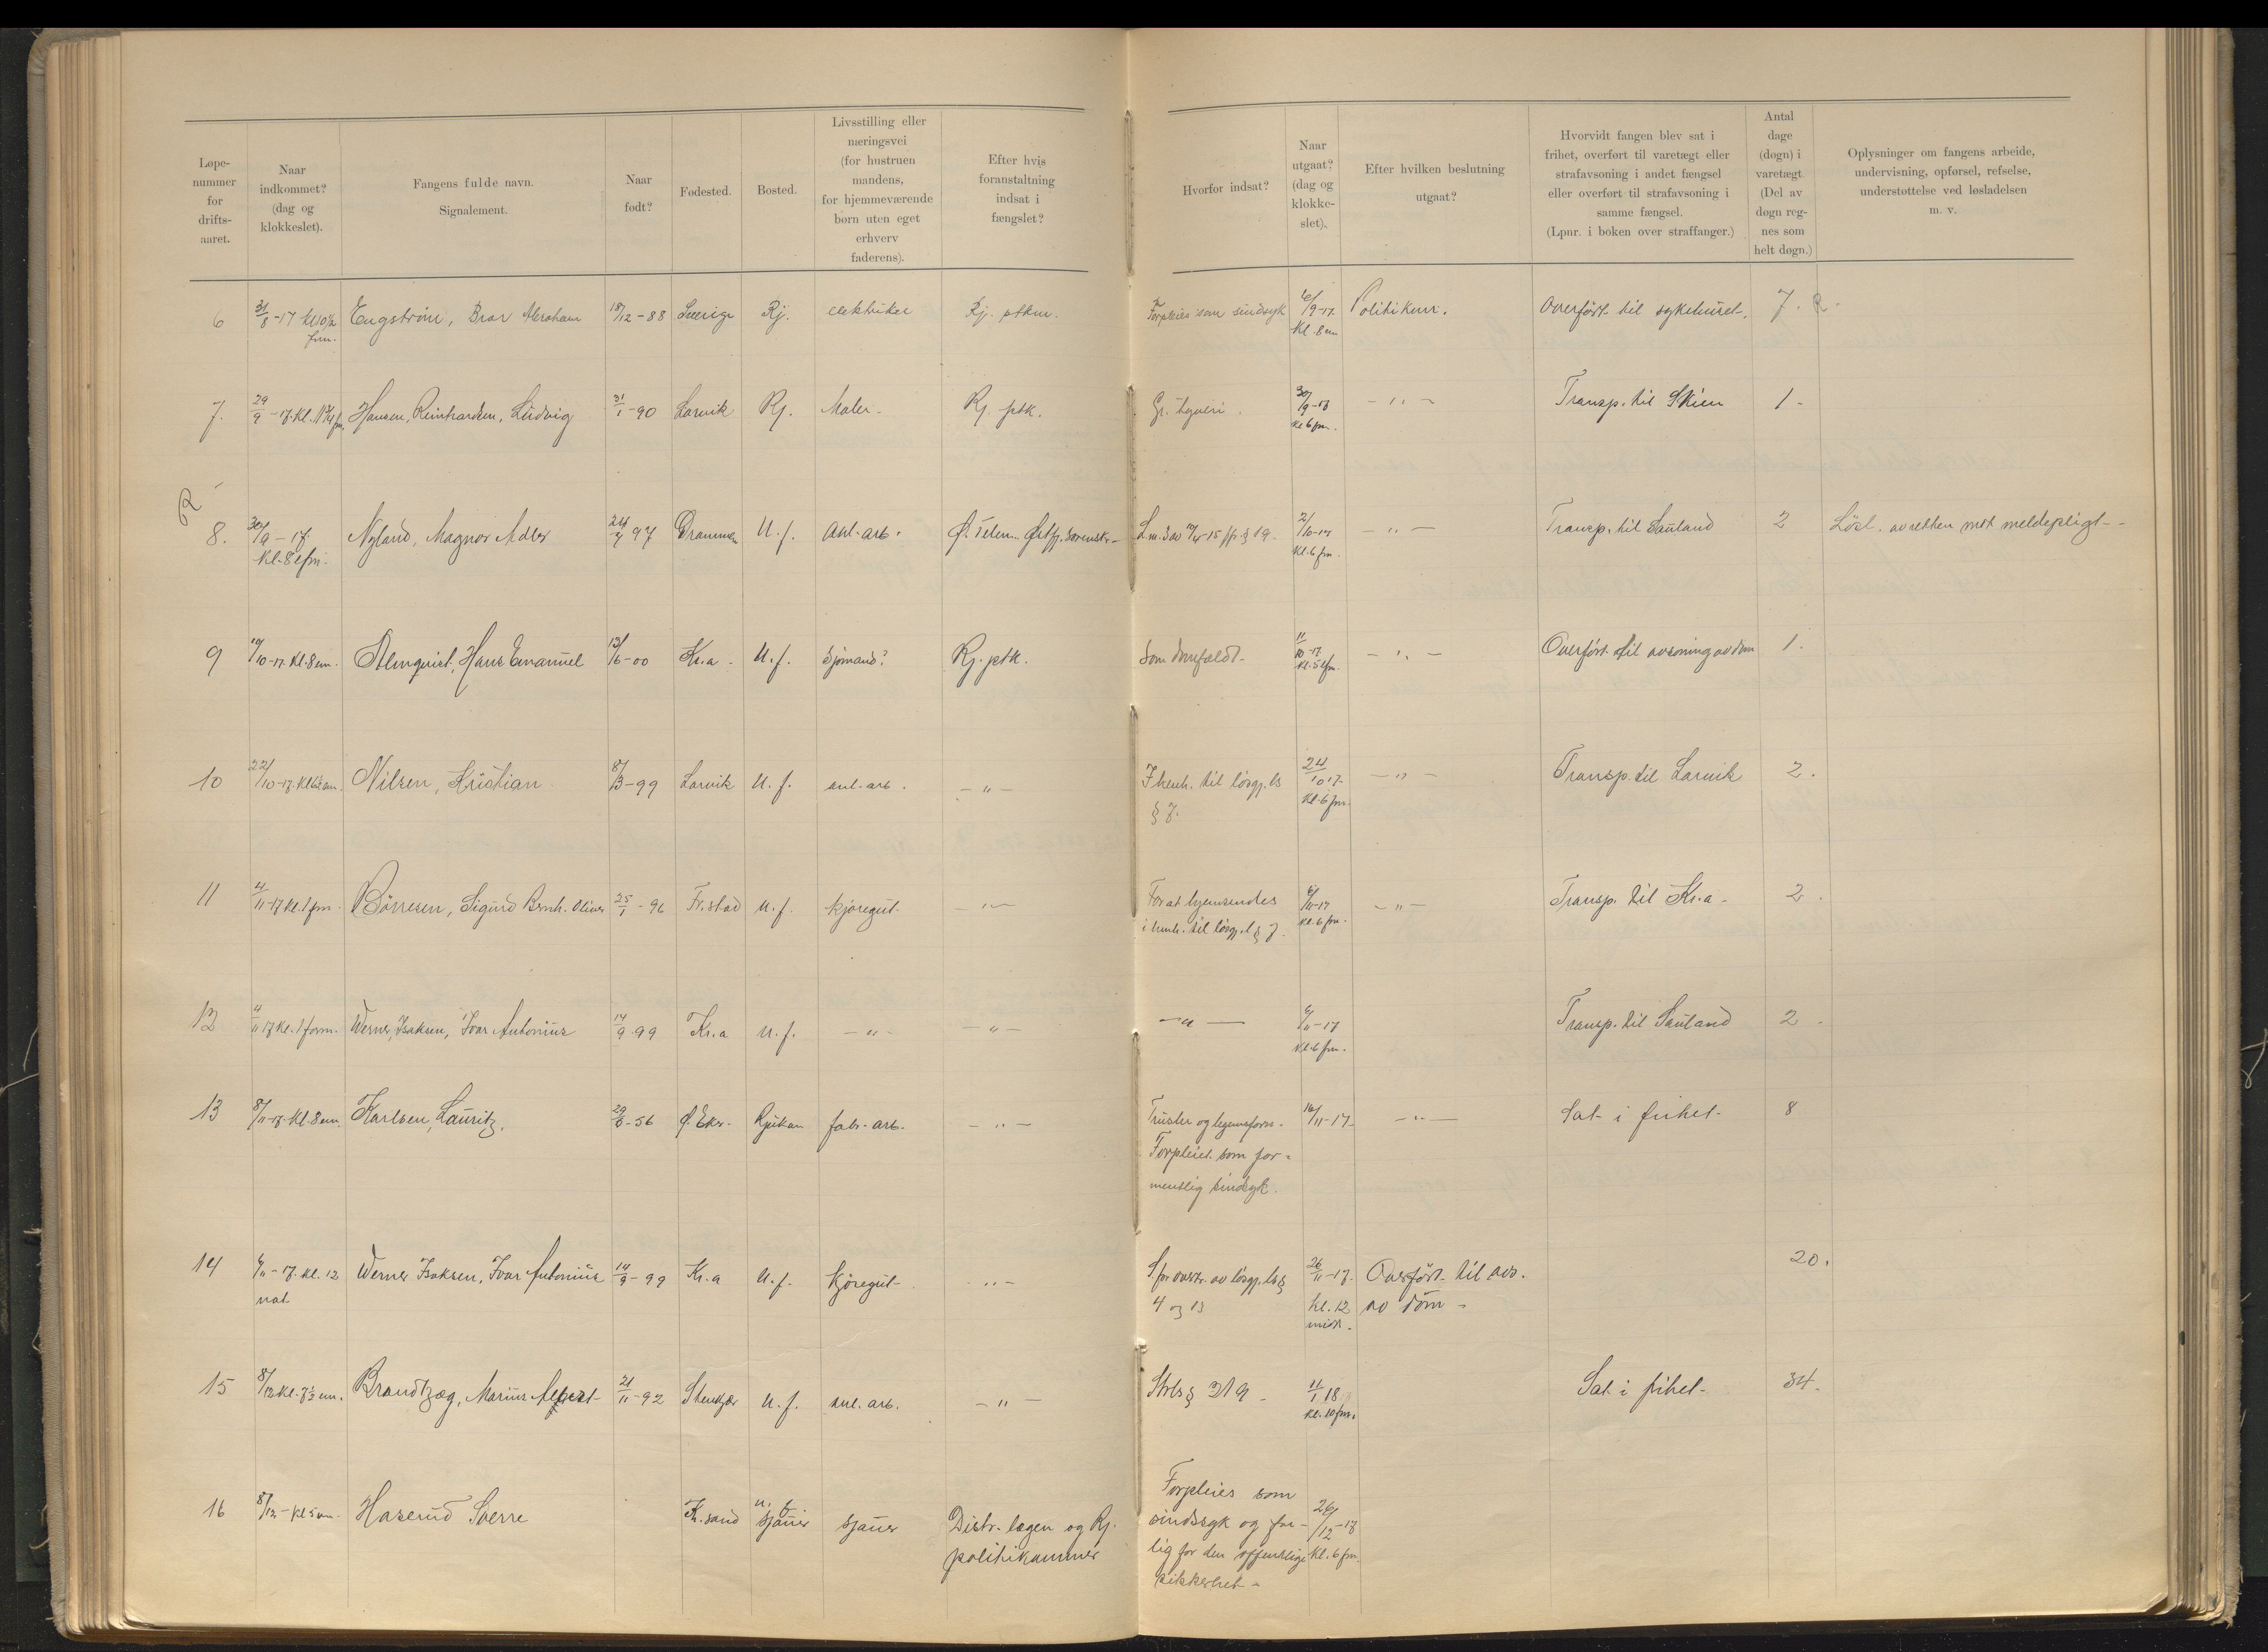 Løpe-
nummer
for
drifts-
aaret.
Naar
indkommet?
(dag og
klokkeslet).
Fangens fulde navn.
Signalement.
Naar
født?
Fødested.
Bosted.
Livsstilling eller
næringsvei
(for hustruen
mandens,
for hjemmeværende
børn uten eget
erhverv
faderens).
Efter hvis
foranstaltning
indsat i
fængslet?
Hvorfor indsat?
Naar
utgaat?
(dag og
klokke-
slet).
Efter hvilken beslutning
utgaat?
Hvorvidt fangen blev sat i
frihet, overført til varetægt eller
strafavsoning i andet fængsel
eller overført til strafavsoning i
samme fængsel.
(Lpnr. i boken over straffanger.)
Antal
dage
(døgn) i
varetægt.
(Del av
døgn reg-
nes som
helt døgn.)
Oplysninger om fangens arbeide,
undervisning, opførsel, refselse,
understøttelse ved løsladelsen
m. v.
6 31/8-17 kl 10½ Engstrøm, Bror Abraham 18/12-88 Sverige Rj. elektriker Rj. ptkm. Forpleies som sindsyk 6/9-17. Politikmr. Overført til sykehuset. 7. R.
fm. Kl. 8 em
7. 29/9-17. Kl. 11¾ fm. Hansen, Reinhardsen, Ludvig 31/1-90 Larvik Rj. Maler. Rj. ptk. Gr. tyveri. 30/9-17 -"- Transp. til Skien 1-
kl 6 fm.
R
8. 30/9-17. Nyland, Magnor Adler 24/7 97 Drammen U. f. anl. arb. Ø. Telem. Østfj. sorenskr. 2/10-17 -"- Transp. til Sauland 2 Løsl. av retten mot meldepligt--
Kl. 8 efm. Kl. 6 fm.
9 10/10-17. Kl. 8 em. Almquist, Hans Emanuel 13/6-00 Kr.a. U. f. Sjømand? Rj. ptk. Som domfældt- 11/10-17 -"- Overført til avsoning av dom 1.
Kl. 5 efm.
10 22/10-17. Nilsen, Kristian 8/3-99 Larvik U. f. anl-arb. -"- I henh. til løsgj. ls 24/10 17- -"- Transp. til Larvik 2.
§ 7. Kl. 6 fm.
11 4/11-17 kl. 1 fm. Børresen, Sigurd Bernh. Oliver 25/1-96 Fr.stad U. f. kjøregut. -"- For at hjemsendes 6/11-17 -"- Transp. til Kr.a- 2.
i henh. til løsgj. l § 7. Kl. 6 fm.
12 4/11 17 Kl. 1 form. Werner, Isaksen, Ivar Antonius 14/9 99 Kr.a U. f. -"- -"- -"- 6/11-17 Transp. til Sauland 2-
Kl. 6 fm.
13 8/11-17. Kl. 8 em. Karlsen, Lauritz. 29/6-56 Ø. Eker. Rjukan fabr-arb. -"- Trusler og legemsforn. 16/11-17- -"- Sat i frihet- 8
Forpleiet som for-
mentlig sindsyk.
14 6/11-17. Kl. 12 Werner Isaksen, Ivar Antonius 14/9-99 Kr.a U. f. kjøregut- -"- S. for overtr. av løsgj. ls § 26/11-17. Overført til avs. 20.
nat 4 og 13 Kl. 12 av dom-
midd.
15 8/12 Kl. 7½ em. Brandtzæg, Marius 21/11-92 Stenkjær U. f. anl. arb. -"- Strls § 219- 11/1 18 Sat i frihet- 34.
Kl. 10 fm.
16 8/12-Kl 5 em. Haserud Sverre Kr.sand u. f. sjauer sjauer Distr. lægen og Rj. Forpleies som 26/12-17
politikammer sindssyk og far- Kl. 6 fm.
lig for den offentlige
sikkerhet-